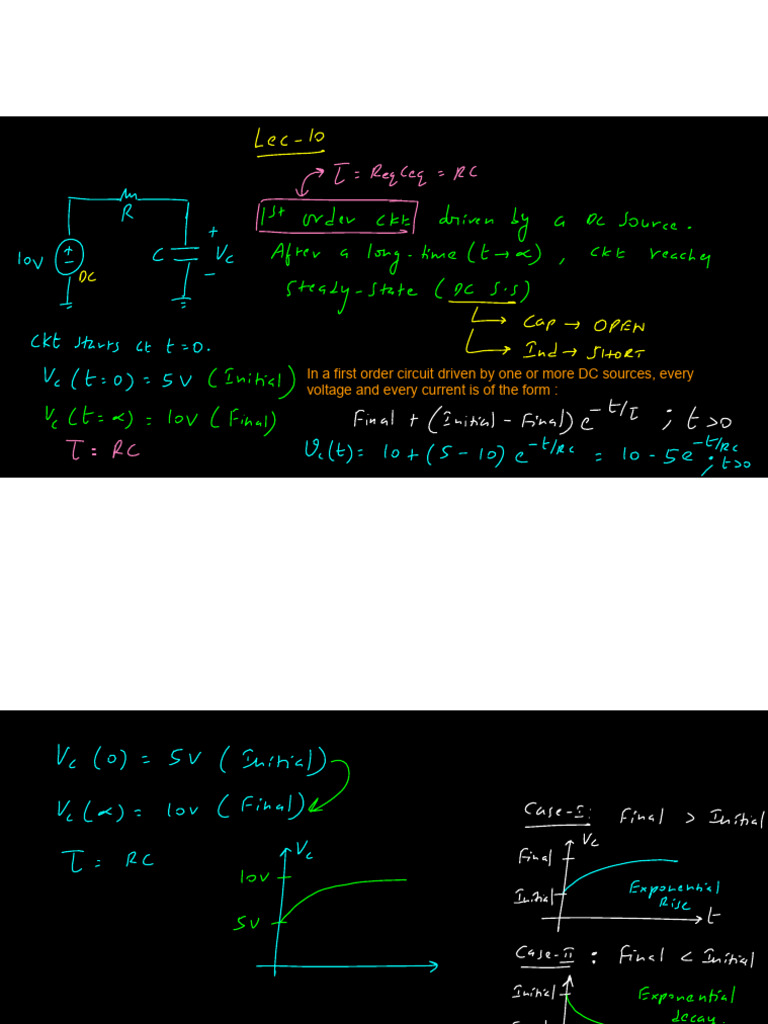 Lec-10
τ = ReqCeq = RC
1st order ckt driven by a DC source.
After a long-time (t→∝), ckt reaches
steady-state (DC S.S)
Cap → OPEN
Ind → SHORT
R
10V
+
-
DC
C
+
Vc
-
ckt starts at t=0.
Vc(t=0) = 5V (Initial)
Vc(t=∝) = 10V (Final)
τ = RC
In a first order circuit driven by one or more DC sources, every
voltage and every current is of the form :
Final + (Initial - Final) e^-t/τ ; t>0
Vc(t) = 10 + (5 - 10) e^-t/RC = 10 - 5e^-t/RC ; t>0
Vc(0) = 5V (Initial)
Vc(∝) = 10V (Final)
τ = RC
Vc
10V
5V
Case-I: Final > Initial
Vc
Final
Initial
Exponential
Rise
t
Case-II : Final < Initial
Initial
Exponential
decay